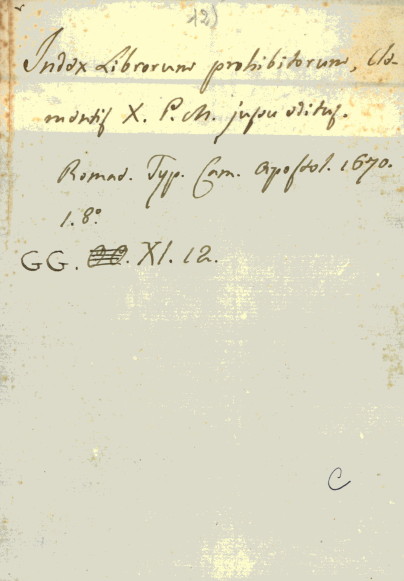 12)
Index Librorum prohibitorum, Cle-
mentis X. P. M. jussu editus.
Romae. Typ. Cam. Apostol. 1670.
1. 8°
GG. XI. 12.
C